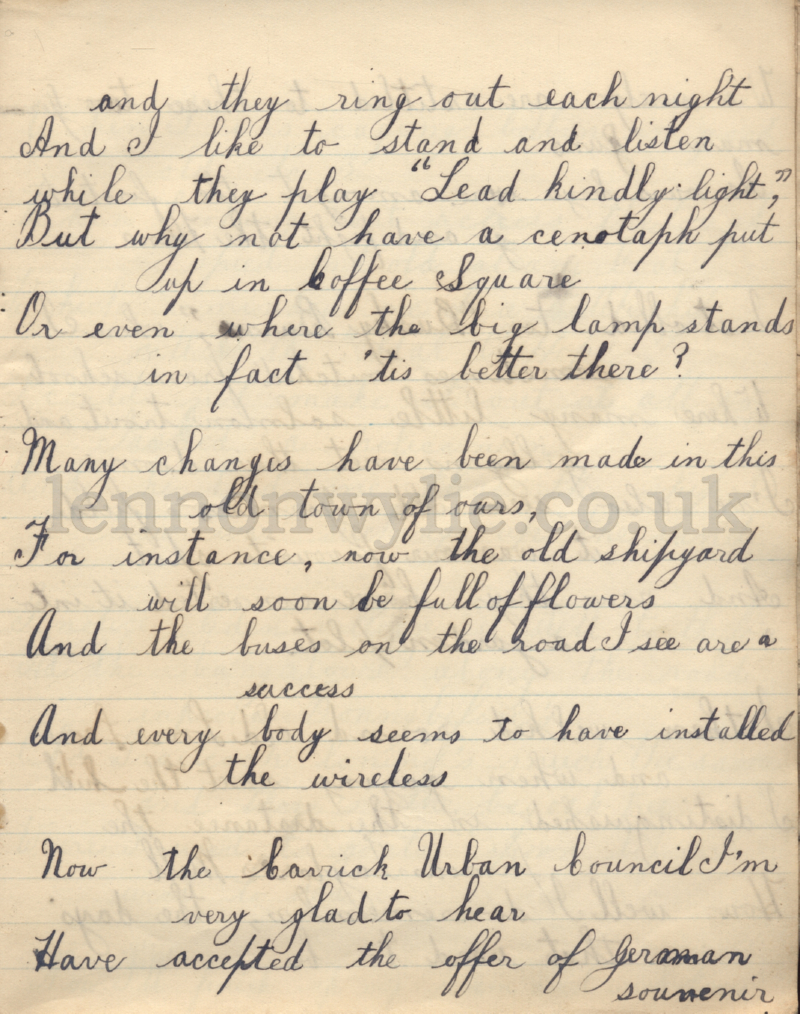 and they ring out each night
And I like to stand and listen
while they play "Lead kindly light,"
But why not have a cenotaph put
up in Coffee Square
Or even where the big lamp stands
in fact 'tis better there?
Many changes have been made in this
old town of ours,
lennonwylie.co.uk
For instance, now the old shipyard
will soon be full of flowers
And the buses on the road I see are a
success
And every body seems to have installed
the wireless
Now the Carrick Urban Council I'm
very glad to hear
Have accepted the offer of German
souvenir